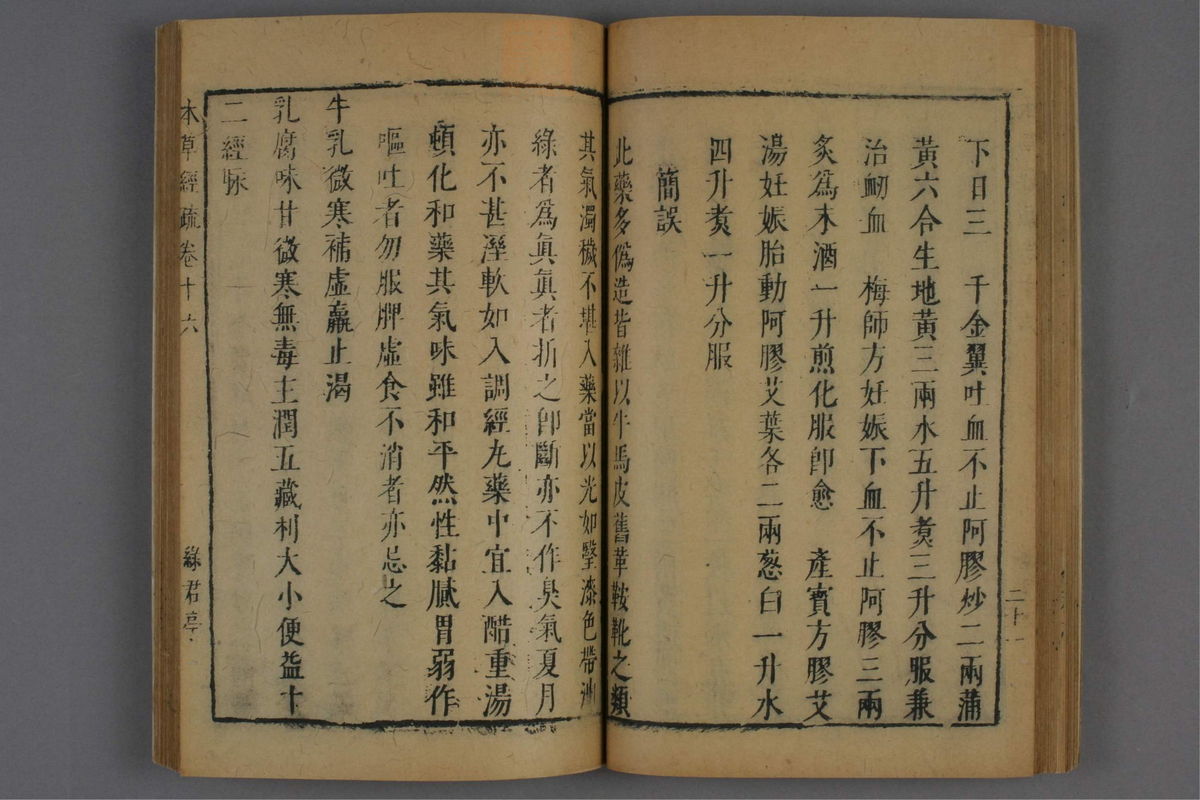 下日三　千金翼吐血不止阿膠炒二兩蒲
黃六合生地黃三兩水五升煑三升分服兼
治衂血　梅師方妊娠下血不止阿膠三兩
炙爲末酒一升煎化服卽愈　產寳方膠艾
湯妊娠胎動阿膠艾葉各二兩葱白一升水
四升煑一升分服
簡誤
此藥多僞造皆雜以牛馬皮舊革鞍靴之類
其氣濁穢不堪入藥當以光如瑿漆色帶油
綠者爲眞眞者折之卽斷亦不作臭氣夏月
亦不甚溼軟如入調經丸藥中宜入醋重湯
頓化和藥其氣味雖和平然性黏膩胃弱作
嘔吐者勿服脾虛食不消者亦忌之
牛乳微寒補虛羸止渴
乳腐味甘微寒無毒主潤五藏利大小便益十
二經脉
本草經疏卷十六
綠君亭
二十一